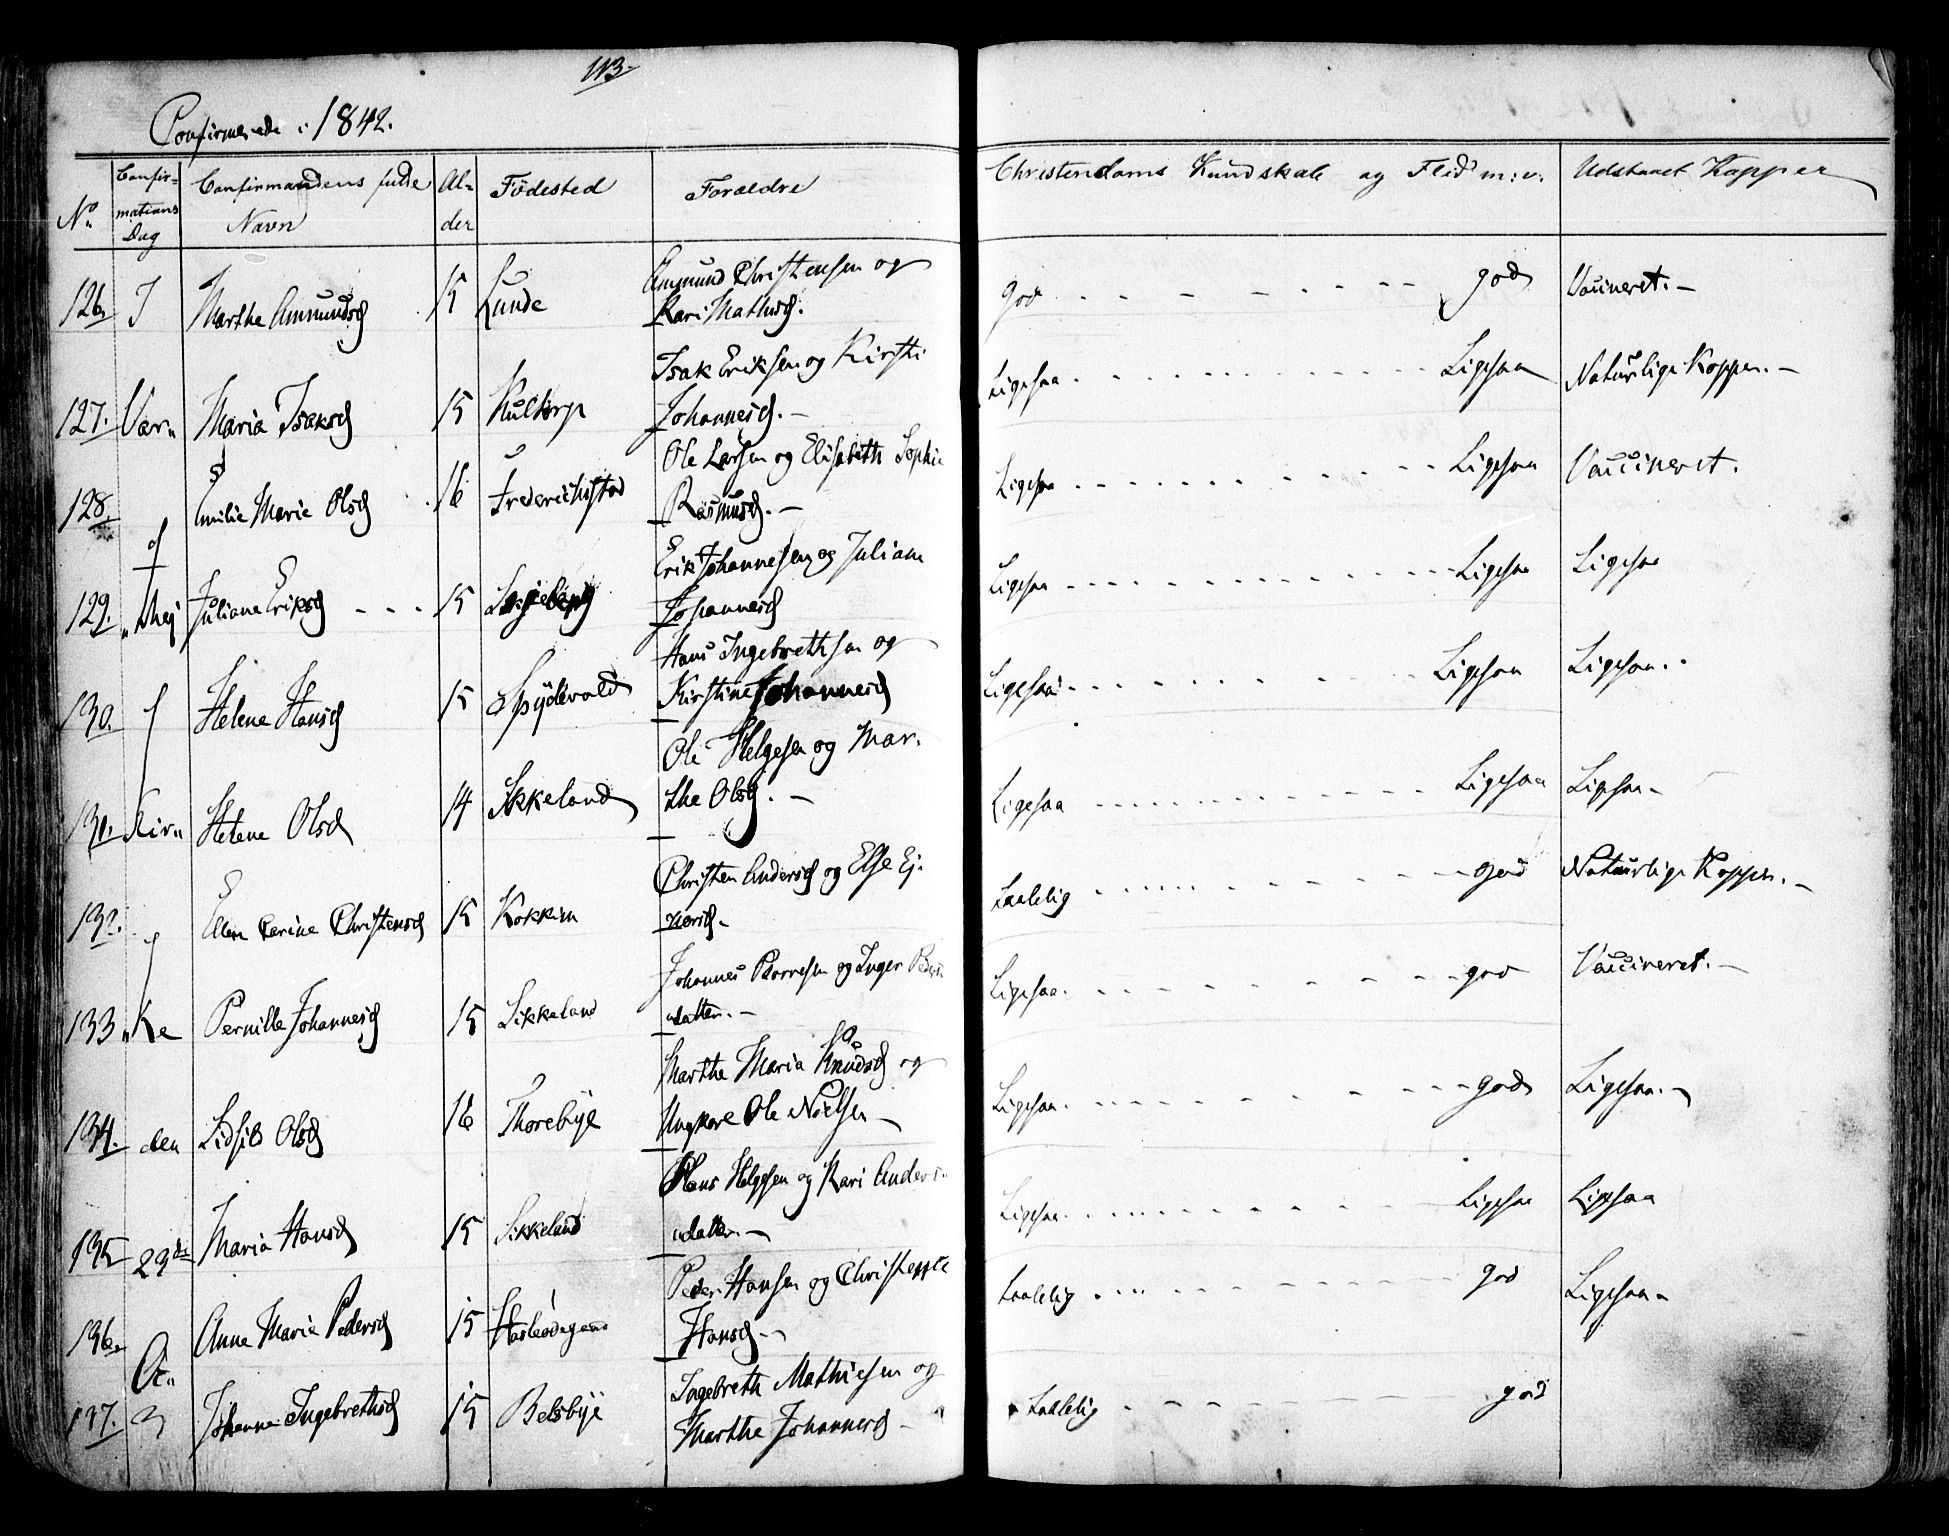 113.
Confirmerede i 1842.
No Confirmations Dag Confirmandens fulde Navn Alder Födested Forældre Christendoms Kundskab og Flid m: v. Udstaaet Kopper
126 I Marthe Amundsd 15 Lunde Ammund Christensen og god god Vaccineret. —
Kari Mathisd.
127. Var„ Maria Isaksd 15 Kultorp Isak Eriksen og Kirsti Ligesaa Ligesaa Naturlige Kopper. —
Johannesd. —
128. Emilie Marie Olsd 16 Frederichstad Ole Larsen og Elisabeth Sophie Ligesaa Ligesaa Vaccineret.
Rasmusd. —
129. Juliane Eriksd 15 Erik Johannesen og Juliane Ligesaa Ligesaa Ligesaa
Johannesd
130. Helene Hansd 15 Spydevold Hans Ingebrethsen og Ligesaa Ligesaa Ligesaa.
Kirstine Johannesd
131. Kir„ Helene Olsd 14 Sikkeland Ole Helgesen og Mar- Ligesaa Ligesaa Ligesaa
the Olsd. —
132. Ellen Karine Christensd 15 Kokkim Christen Andersd og Else Ej- Taalelig god Naturlige Kopper. —
nersd.
133 „Ke Pernille Johannesd 15 Sikkeland Johannes Borresen og Inger Peders- Ligesaa. god Vaccineret. —
datter. —
134. den Sidsil Olsd 16 Thorebye Marthe Maria Knudsd og Ligesaa. god Ligesaa. —
Ungkarl Ole Nielsen —
135 23de Maria Hansd 15 Sikkeland Hans Helgesen og Kari Anders- Ligesaa. Ligesaa Ligesaa
datter. —
136. Anne Marie Pedersd 15 Peder Hansen og Christeppte Taalelig god Ligesaa
Oc„ Hansd. —
137. Johanne Ingebrethsd 15 Belsbye Ingebreth Mathiesen og Taalelig god
Marthe Johannesd —